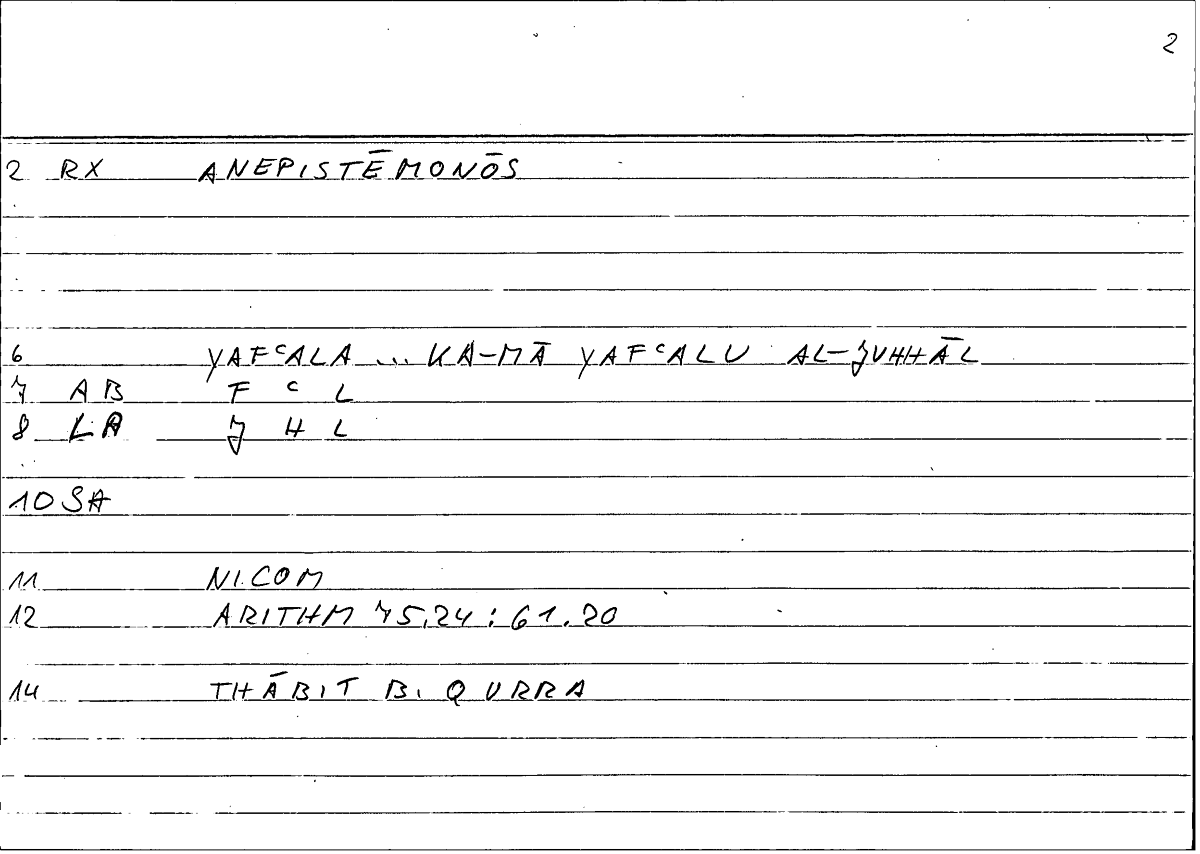 2
2 RX ANEPISTĒMONŌS
6 YAFᶜALA ... KA-MĀ YAFᶜALU AL-JUHHĀL
7 AB F ᶜ L
8 LA J H L
10 SA
11 NICOM
12 ARITHM 75.24 : 61.20
14 THĀBIT B. QURRA